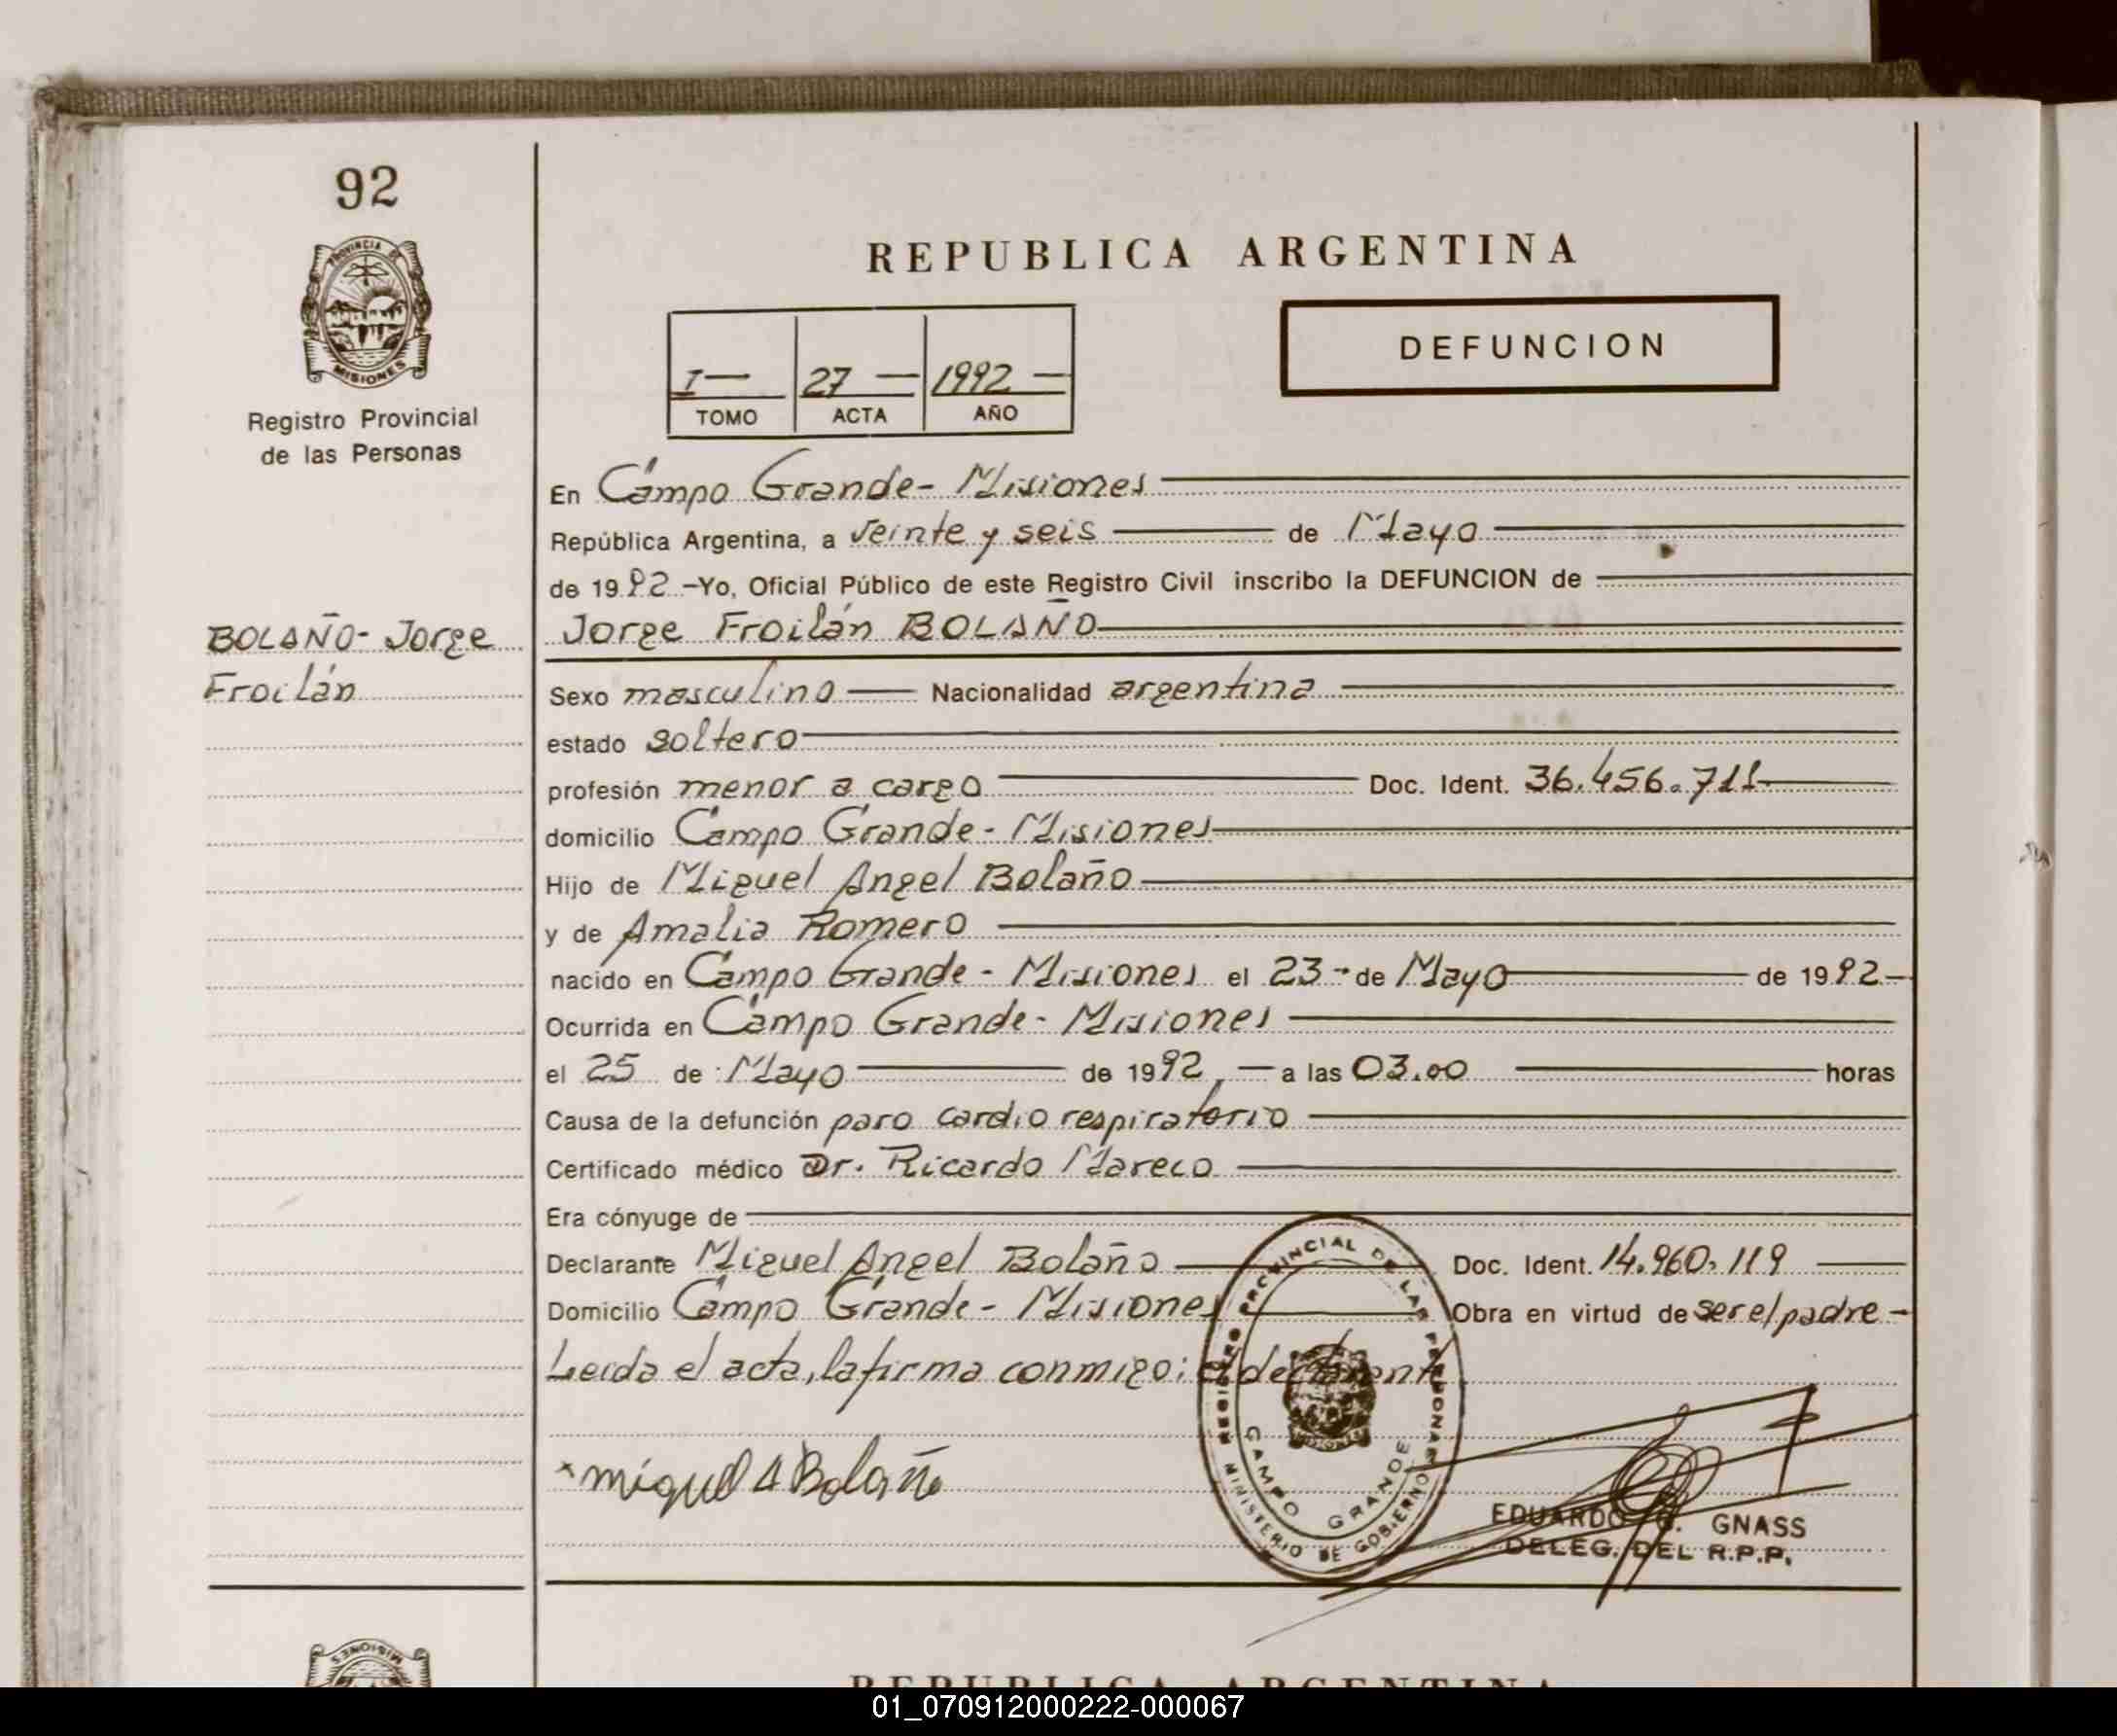 92
PROVINCIA DE
MISIONES
Registro Provincial
de las Personas
BOLAÑO- Jorge
Froilán
REPUBLICA ARGENTINA
I — 27 — 1992 —
TOMO ACTA AÑO
DEFUNCION
En Campo Grande- Misiones
República Argentina, a veinte y seis de Mayo
de 1992 -Yo, Oficial Público de este Registro Civil inscribo la DEFUNCION de
Jorge Froilán BOLAÑO
Sexo masculino Nacionalidad argentina
estado soltero
profesión menor a cargo Doc. Ident. 36.456.711-
domicilio Campo Grande- Misiones
Hijo de Miguel Angel Bolaño
y de Amalia Romero
nacido en Campo Grande - Misiones el 23- de Mayo de 1992-
Ocurrida en Campo Grande- Misiones
el 25 de Mayo de 1992, a las 03.00 horas
Causa de la defunción paro cardio respiratorio
Certificado médico Dr. Ricardo Mareco
Era cónyuge de
Declarante Miguel Angel Bolaño Doc. Ident. 14.960.119
Domicilio Campo Grande- Misiones Obra en virtud de ser el padre -
Leida el acta, la firma conmigo: el declarante
REGISTRO PROVINCIAL DE LAS PERSONAS
MINISTERIO DE GOBIERNO
CAMPO GRANDE
MISIONES
miguel A Bolaño
EDUARDO GNASS
DELEG. DEL R.P.P.
MISIONES
REPUBLICA ARGENTINA
01_070912000222-000067